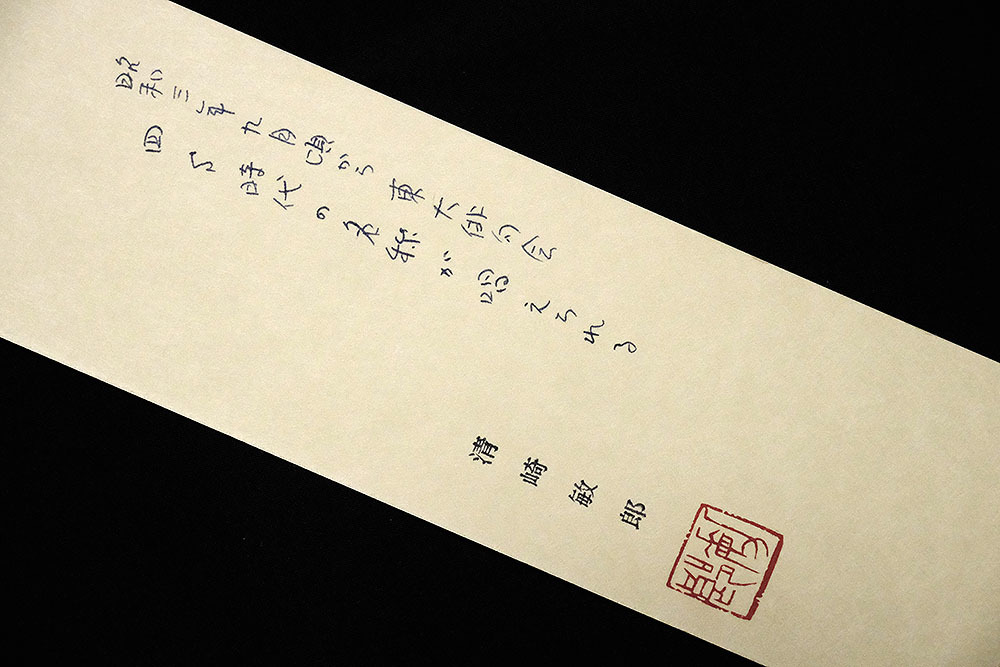 昭和三年九月頃から東大俳句会
四S時代の名称が唱えられる
清崎敏郎